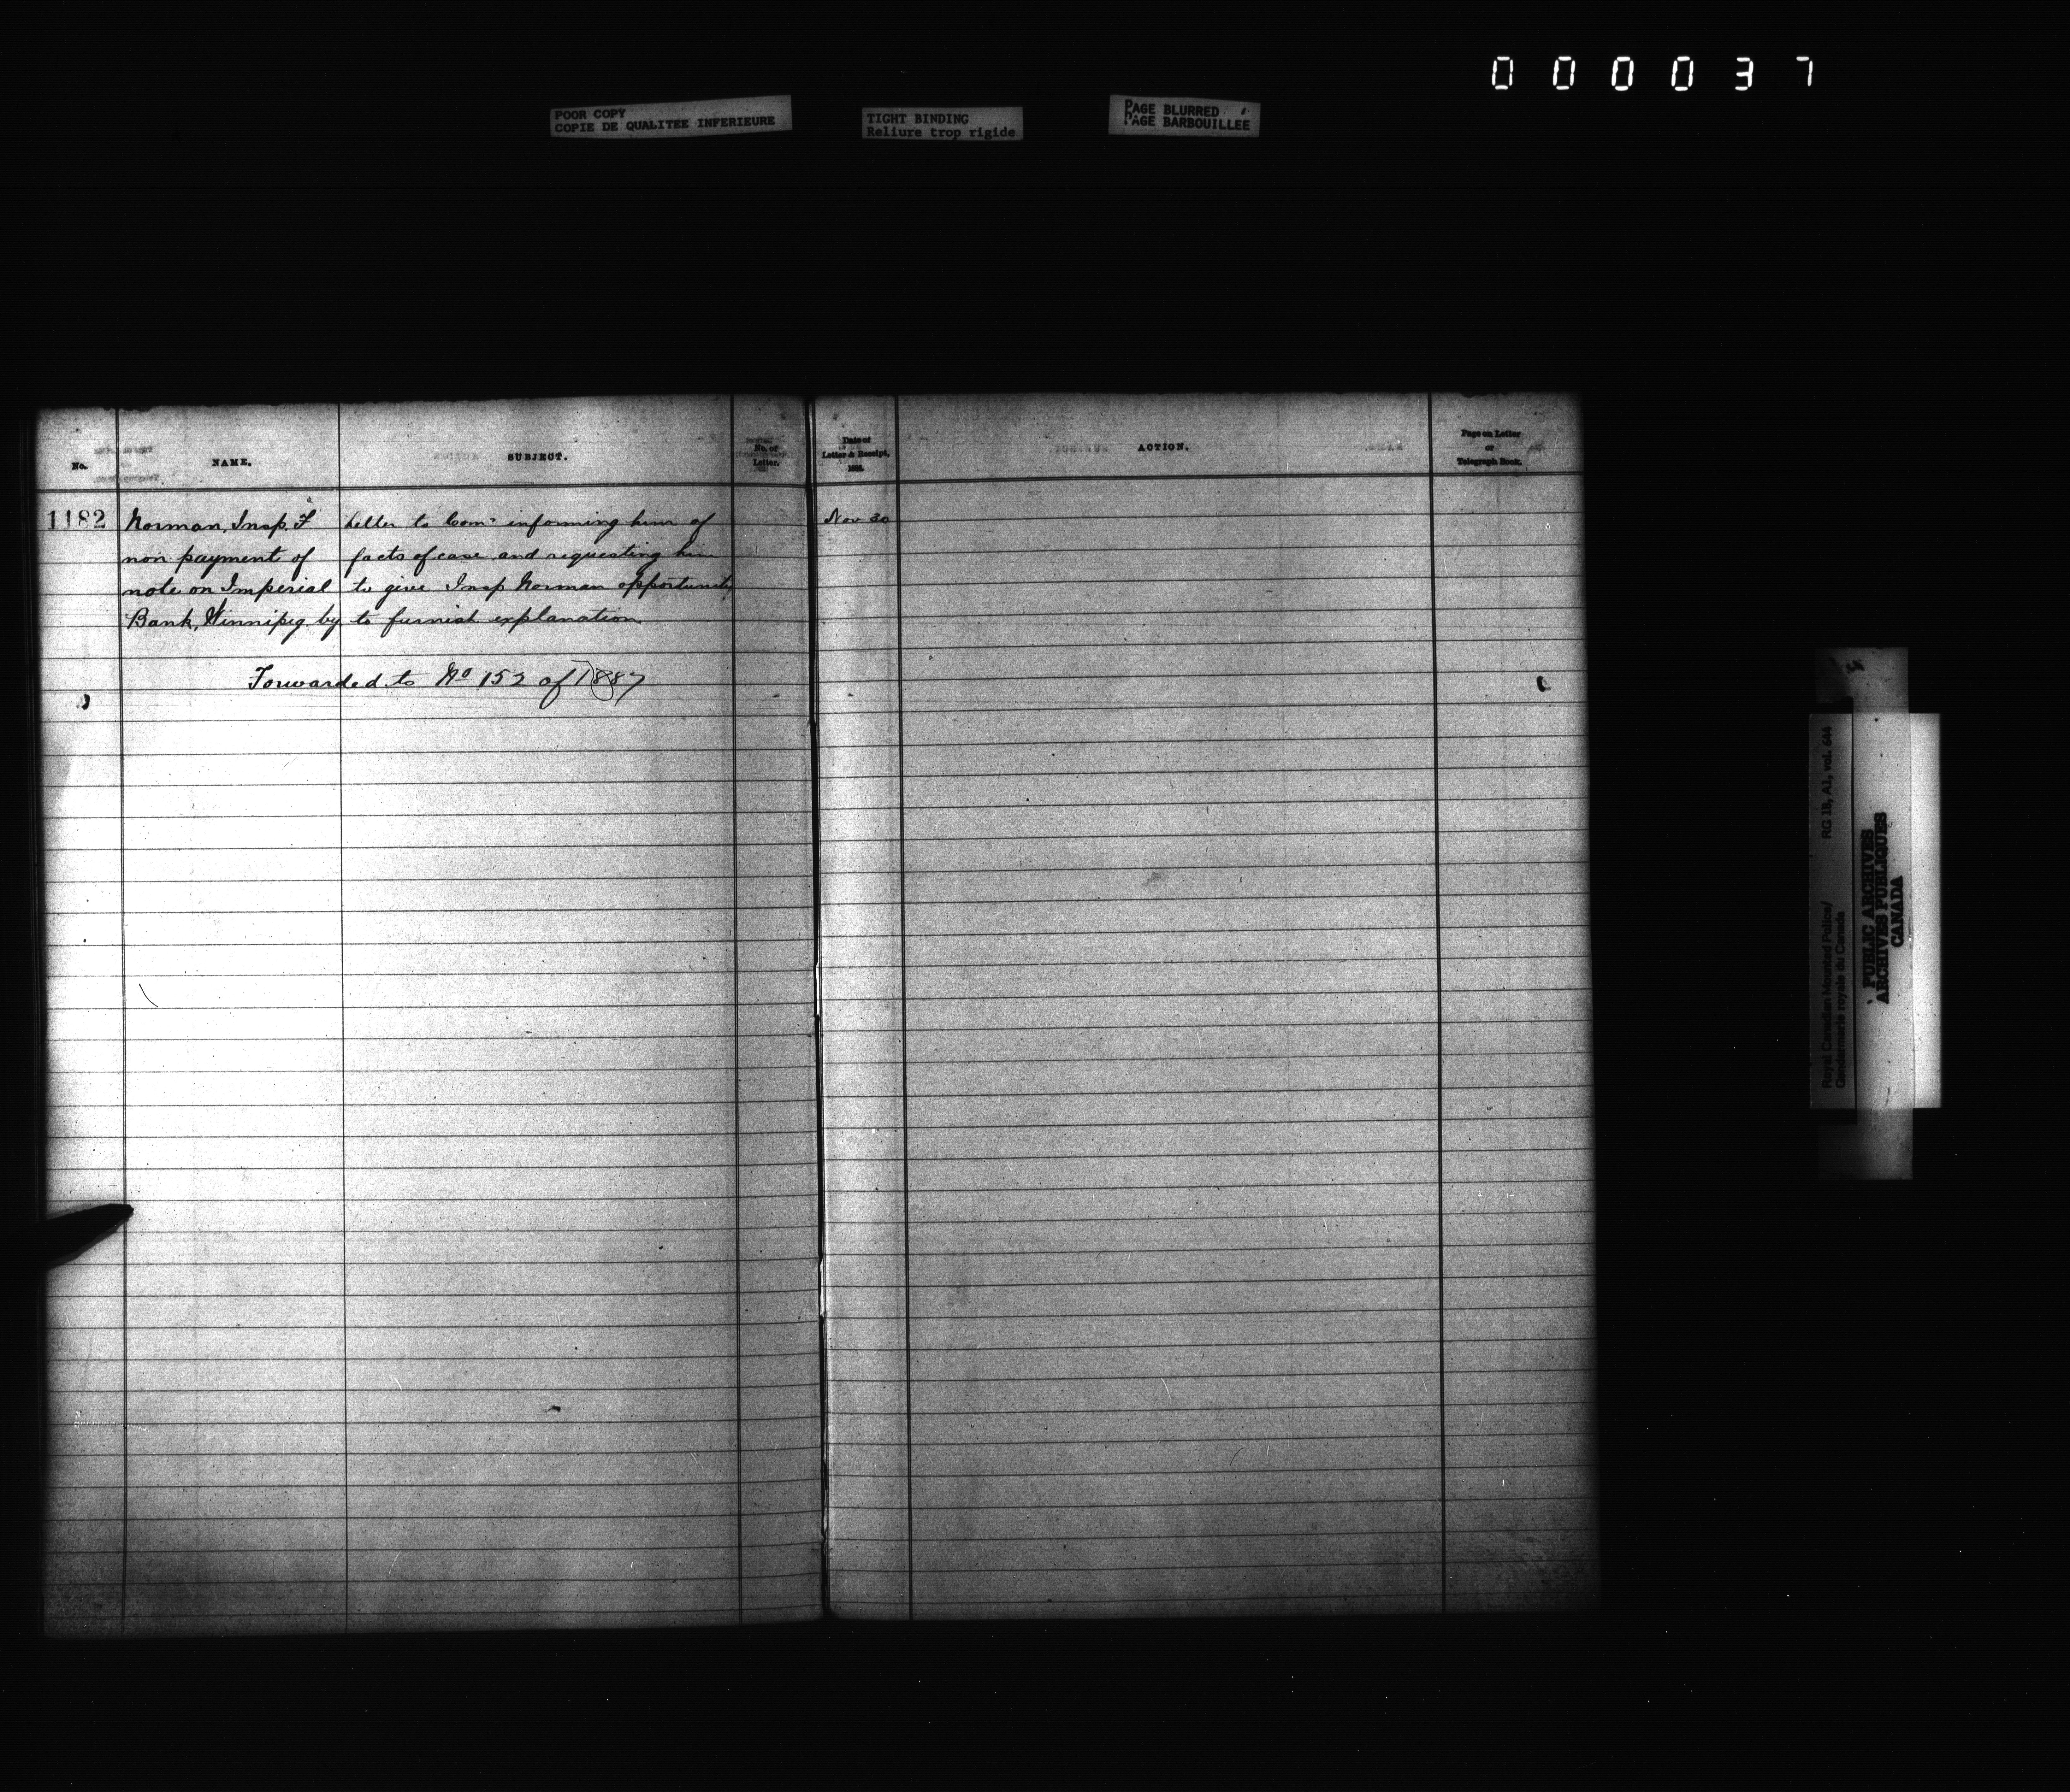 000037
POOR COPY
COPIE DE QUALITEE INFERIEURE
TIGHT BINDING
Reliure trop rigide
PAGE BLURRED
PAGE BARBOUILLEE
No.
NAME.
SUBJECT.
No. of
Letter.
Date of
Letter & Receipt,
ACTION.
Page on Letter
or
Telegraph Book.
1182
Norman, Insp. F
non payment of
note on Imperial
Bank, Winnipeg by
Letter to Comr informing him of
facts of case and requesting him
to give Insp Norman opportunity
to furnish explanation.
Nov 30
Forwarded to No 152 of 1887
Royal Canadian Mounted Police/
Gendarmerie royale du Canada
RG 18, A1, vol. 644
PUBLIC ARCHIVES
ARCHIVES PUBLIQUES
CANADA